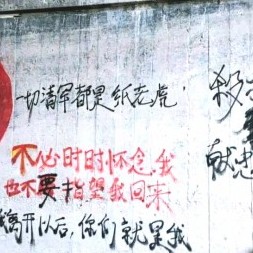 一切清军都是纸老虎
不必时时怀念我
也不要指望我回来
我离开以后,你们就是我
殺
献忠